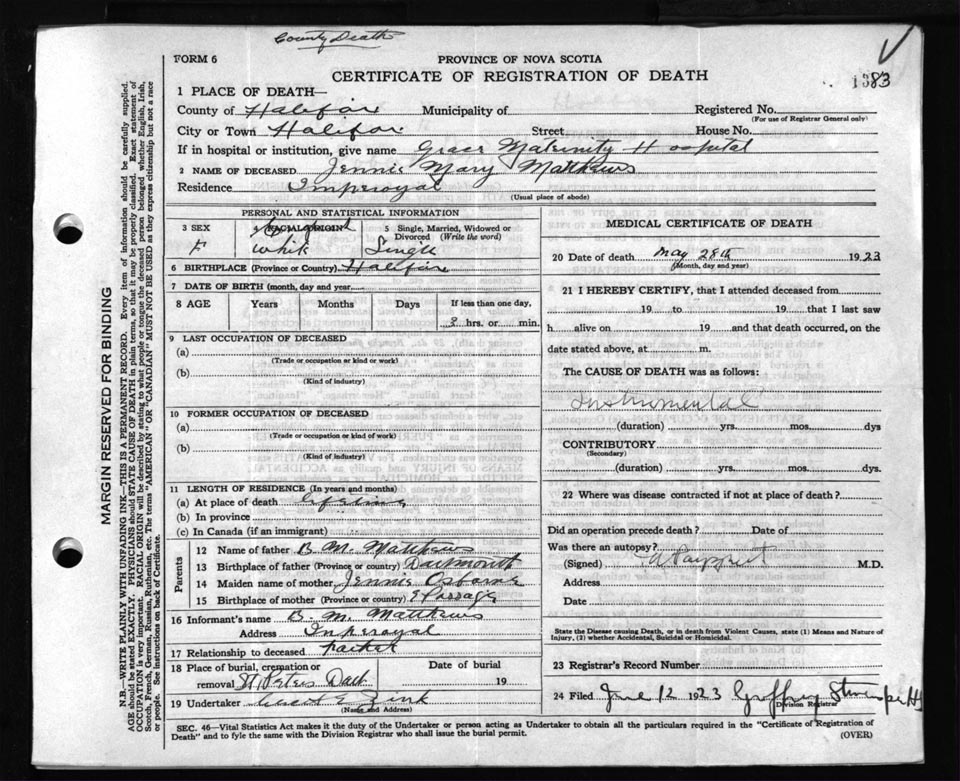 County Death
FORM 6
PROVINCE OF NOVA SCOTIA
CERTIFICATE OF REGISTRATION OF DEATH
1383
1 PLACE OF DEATH—
County of Halifax Municipality of Registered No.
(For use of Registrar General only)
City or Town Halifax Street House No.
If in hospital or institution, give name Grace Maternity Hospital
2 NAME OF DECEASED Jennie Mary Matthews
Residence Imperoyal
(Usual place of abode)
PERSONAL AND STATISTICAL INFORMATION
3 SEX 4 RACIAL ORIGIN 5 Single, Married, Widowed or Divorced (Write the word)
F White Single
6 BIRTHPLACE (Province or Country) Halifax
7 DATE OF BIRTH (month, day and year)
8 AGE Years Months Days If less than one day,
3 hrs. or min.
9 LAST OCCUPATION OF DECEASED
(a)
(Trade or occupation or kind or work)
(b)
(Kind of industry)
10 FORMER OCCUPATION OF DECEASED
(a)
(Trade or occupation or kind of work)
(b)
(Kind of industry)
11 LENGTH OF RESIDENCE (In years and months)
(a) At place of death lifetime
(b) In province
(c) In Canada (if an immigrant)
Parents
12 Name of father B. M. Matthews
13 Birthplace of father (Province or country) Dartmouth
14 Maiden name of mother Jennie Osborne
15 Birthplace of mother (Province or country) E Passage
16 Informant's name B. M. Matthews
Address Imperoyal
17 Relationship to deceased father
18 Place of burial, cremation or removal St. Peters Dart Date of burial 19
19 Undertaker Zink
(Name and Address)
MEDICAL CERTIFICATE OF DEATH
20 Date of death May 28th 1923
(Month, day and year)
21 I HEREBY CERTIFY, that I attended deceased from
19 to 19 that I last saw
h alive on 19 and that death occurred, on the
date stated above, at m.
The CAUSE OF DEATH was as follows:
Instrumental
(duration) yrs. mos. dys
CONTRIBUTORY
(Secondary)
(duration) yrs. mos. dys.
22 Where was disease contracted if not at place of death?
Did an operation precede death? Date of
Was there an autopsy?
(Signed) M.D.
Address
Date
State the Disease causing Death, or in death from Violent Causes, state (1) Means and Nature of
Injury, (2) whether Accidental, Suicidal or Homicidal.
23 Registrar's Record Number
24 Filed June 12 1923
Division Registrar
SEC. 46—Vital Statistics Act makes it the duty of the Undertaker or person acting as Undertaker to obtain all the particulars required in the "Certificate of Registration of
Death" and to fyle the same with the Division Registrar who shall issue the burial permit.
(OVER)
MARGIN RESERVED FOR BINDING
N.B.—WRITE PLAINLY WITH UNFADING INK—THIS IS A PERMANENT RECORD. Every item of information should be carefully supplied.
AGE should be stated EXACTLY. PHYSICIANS should STATE CAUSE OF DEATH in plain terms, so that it may be properly classified. Exact statement of
OCCUPATION is very important. RACIAL ORIGIN will be described by stating to what people or tongue the deceased person belonged whether English, Irish,
Scotch, French, German, Russian, Ruthenian, etc. The terms "AMERICAN" OR "CANADIAN" MUST NOT BE USED as they express citizenship but not a race
or people. See instructions on back of Certificate.